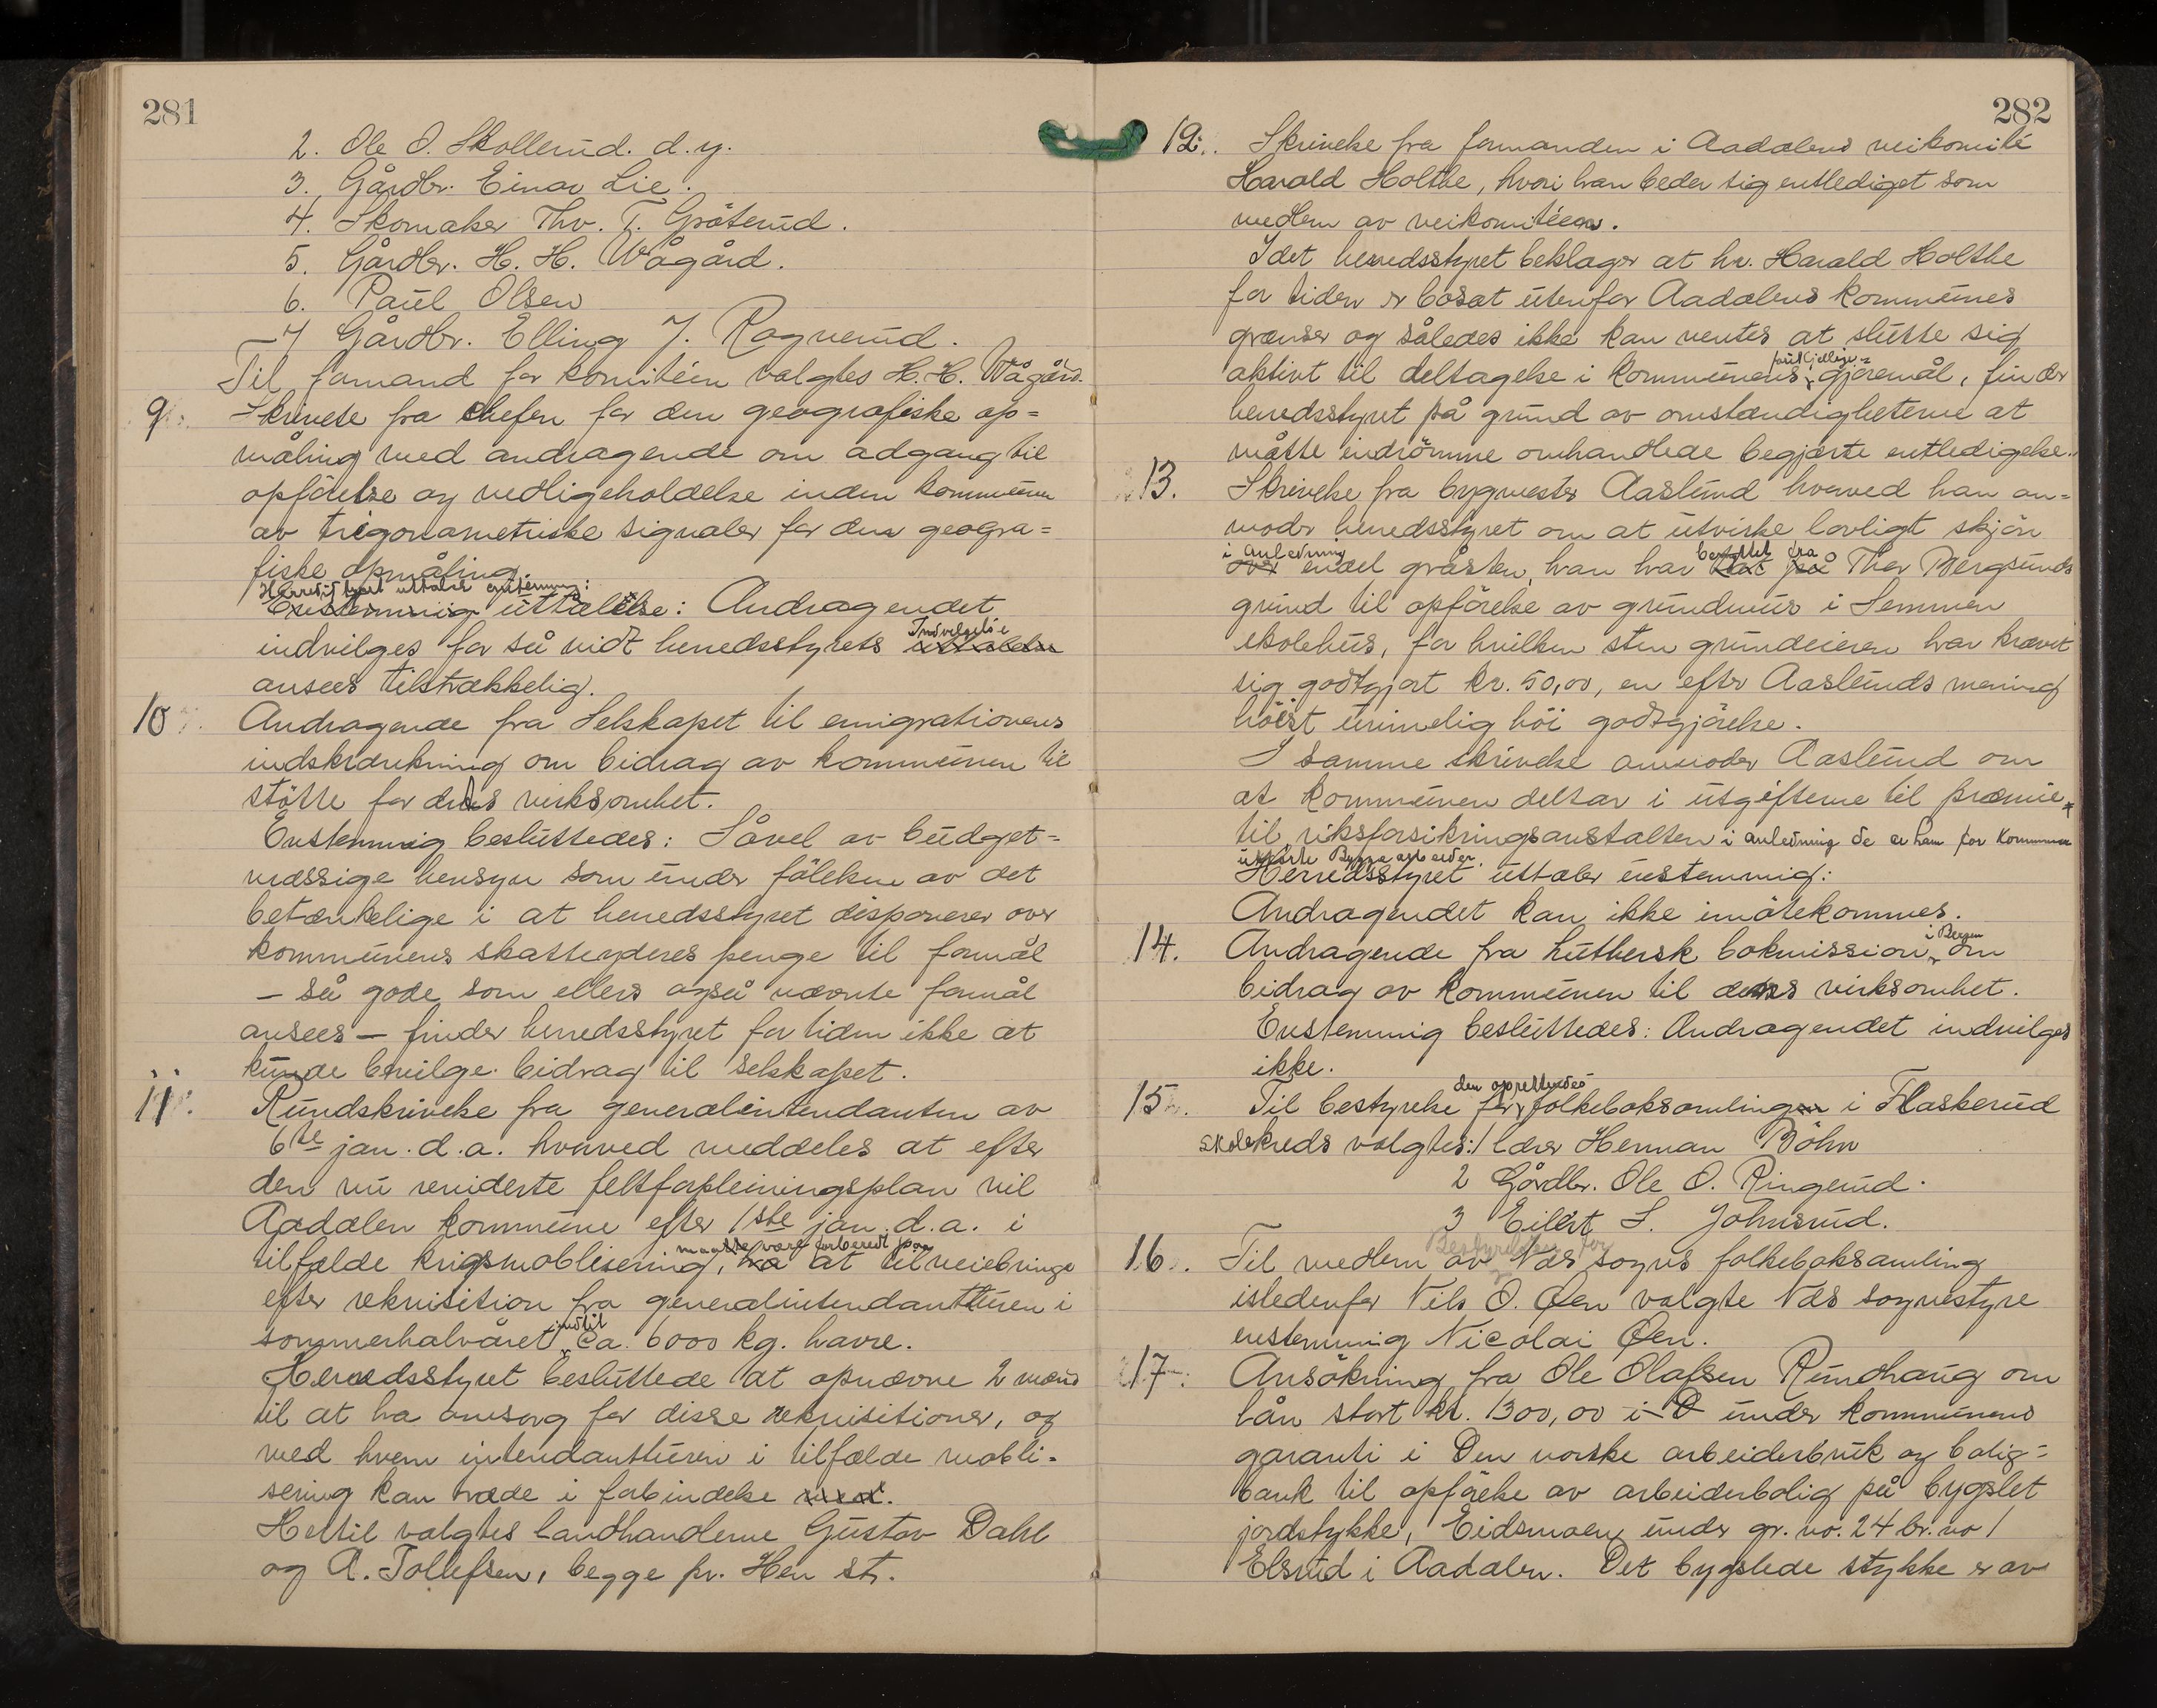 281
2. Ole O. Skollerud. d.y.
3. Gårdbr. Einar Lie.
4. Skomaker Thv. T. Gröterud.
5. Gårdbr. H. H. Wågård.
6. Paul Olsen
7 Gårdbr. Elling J. Ragnerud.
Til formand for komitéen valgtes H. H. Wågård.
9. Skrivelse fra chefen for den geografiske op=
måling med andragende om adgang til
opförelse og vedligeholdelse inden kommunen
av trigonometriske signaler for den geogra=
fiske opmåling.
Herredsstyret uttaler enstemmig:
Enstemmig uttalelse: Andragendet
Indvilgelse
indvilges for så vidt herredsstyrets uttalelse
ansees tilstrækkelig.
10. Andragende fra Selskapet til emigrationens
indskrænkning om bidrag av kommunen til
stötte for dets virksomhet.
Enstemmig besluttedes: Såvel av budget=
mæssige hensyn som under fölelsen av det
betænkelige i at herredsstyret disponerer over
kommunens skatteyderes penge til formål
– så gode som ellers også nævnte formål
ansees – finder herredsstyret for tiden ikke at
kunde bevilge bidrag til selskapet.
11. Rundskrivelse fra generalintendanten av
6te jan. d.a. hvorved meddeles at efter
den nu reviderte feltforpleiningsplan vil
Aadalen kommune efter 1ste jan. d.a. i
maatte være forberedt paa
tilfælde krigsmoblisering, ha at tilveiebringe
efter rekvisition fra generalintendantturen i
indtil
sommerhalvåret ca. 6000 kg. havre.
Herredsstyret besluttede at opnævne 2 mænd
til at ha omsorg for disse rekvisitioner, og
med hvem intendantturen i tilfælde mobli=
sering kan træde i forbindelse med.
Hertil valgtes landhandlerne Gustav Dahl
og A. Tollefsen, begge pr. Hen st.
282
12. Skrivelse fra formanden i Aadalens veikomité
Harald Holthe, hvori han beder sig entlediget som
medlem av veikomitéen.
Idet herredsstyret beklager at hr. Harald Holthe
for tiden er bosat utenfor Aadalens kommunes
grænser og således ikke kan ventes at slutte sig
aktivt til deltagelse i kommunens gjöremål, finder
herredsstyret på grund av omstændigheterne at
måtte indrömme omhandlede begjærte entledigelse.
13. Skrivelse fra bygmester Aaslund hvorved han an=
moder herredsstyret om at utvirke lovligt skjön
i anledning benyttet fra
over endel gråsten, han har tat på Thor Bergsunds
grund til opförelse av grundmur i Semmen
skolehus, for hvilken sten grundeieren har krævet
sig godtgjort kr. 50,00, en efter Aaslunds mening
höist urimelig höi godtgjörelse.
I samme skrivelse anmoder Aaslund om
at kommunen deltar i utgifterne til præmie
til riksforsikringsanstalten i anledning de av ham for kommunen
utförte Byggearbeider.
Herredsstyret uttaler enstemmig:
Andragendet kan ikke imötekommes.
i Bergen
14. Andragende fra Luthersk bokmission om
bidrag av kommunen til dens virksomhet.
Enstemmig besluttedes: Andragendet indvilges
ikke.
den oprettedes
15. Til bestyrelse for folkeboksamlingen i Flaskerud
skolekreds valgtes: 1 lærer Herman Böhn
2 Gårdbr. Ole O. Ringerud.
3 Eilert S. Johnsrud.
Bestyrelsen for
16. Til medlem av Næs sogns folkeboksamling
istedenfor Nils O. Øen valgte Næs sognestyre
enstemmig Nicolai Øen.
17. Ansökning fra Ole Olafsen Rundhaug om
lån stort kr. 1300,00 i D under kommunens
garanti i Den norske arbeiderbruk og bolig=
bank til opförelse av arbeiderbolig på bygslet
jordstykke, Eidsmoen under gr. no. 24 br. no 1
Elsrud i Aadalen. Det bygslede stykke er av